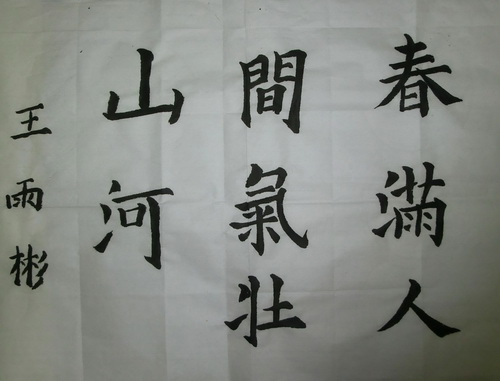 春滿人
間氣壯
山河
王雨彬